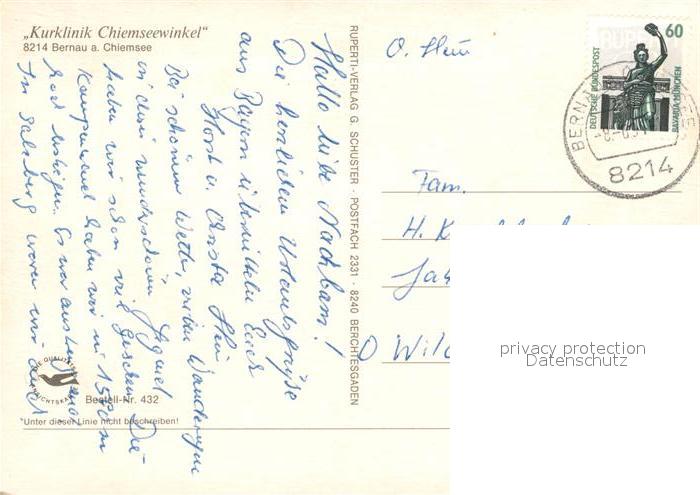 „Kurklinik Chiemseewinkel"
8214 Bernau a. Chiemsee
Hallo liebe Nachbarn!
Die herzlichen Urlaubsgrüße
aus Bayern übermitteln Euch
Horst u. Christa
Bei schönem Wetter, vielen Wanderungen
in einer wunderschönen Gegend
haben wir schon viel gesehen. Die
Kampenwand haben wir in 1500 m
Es war anstrengend
In Salzburg waren wir auch
RUPERTI-VERLAG G. SCHUSTER · POSTFACH 2331 · 8240 BERCHTESGADEN
DIE QUALITÄTS
ANSICHTSKARTE
Bestell-Nr. 432
*Unter dieser Linie nicht beschreiben!
60
DEUTSCHE BUNDESPOST
BAVARIA MÜNCHEN
8214
Fam.
H. K
O Wil
privacy protection
Datenschutz